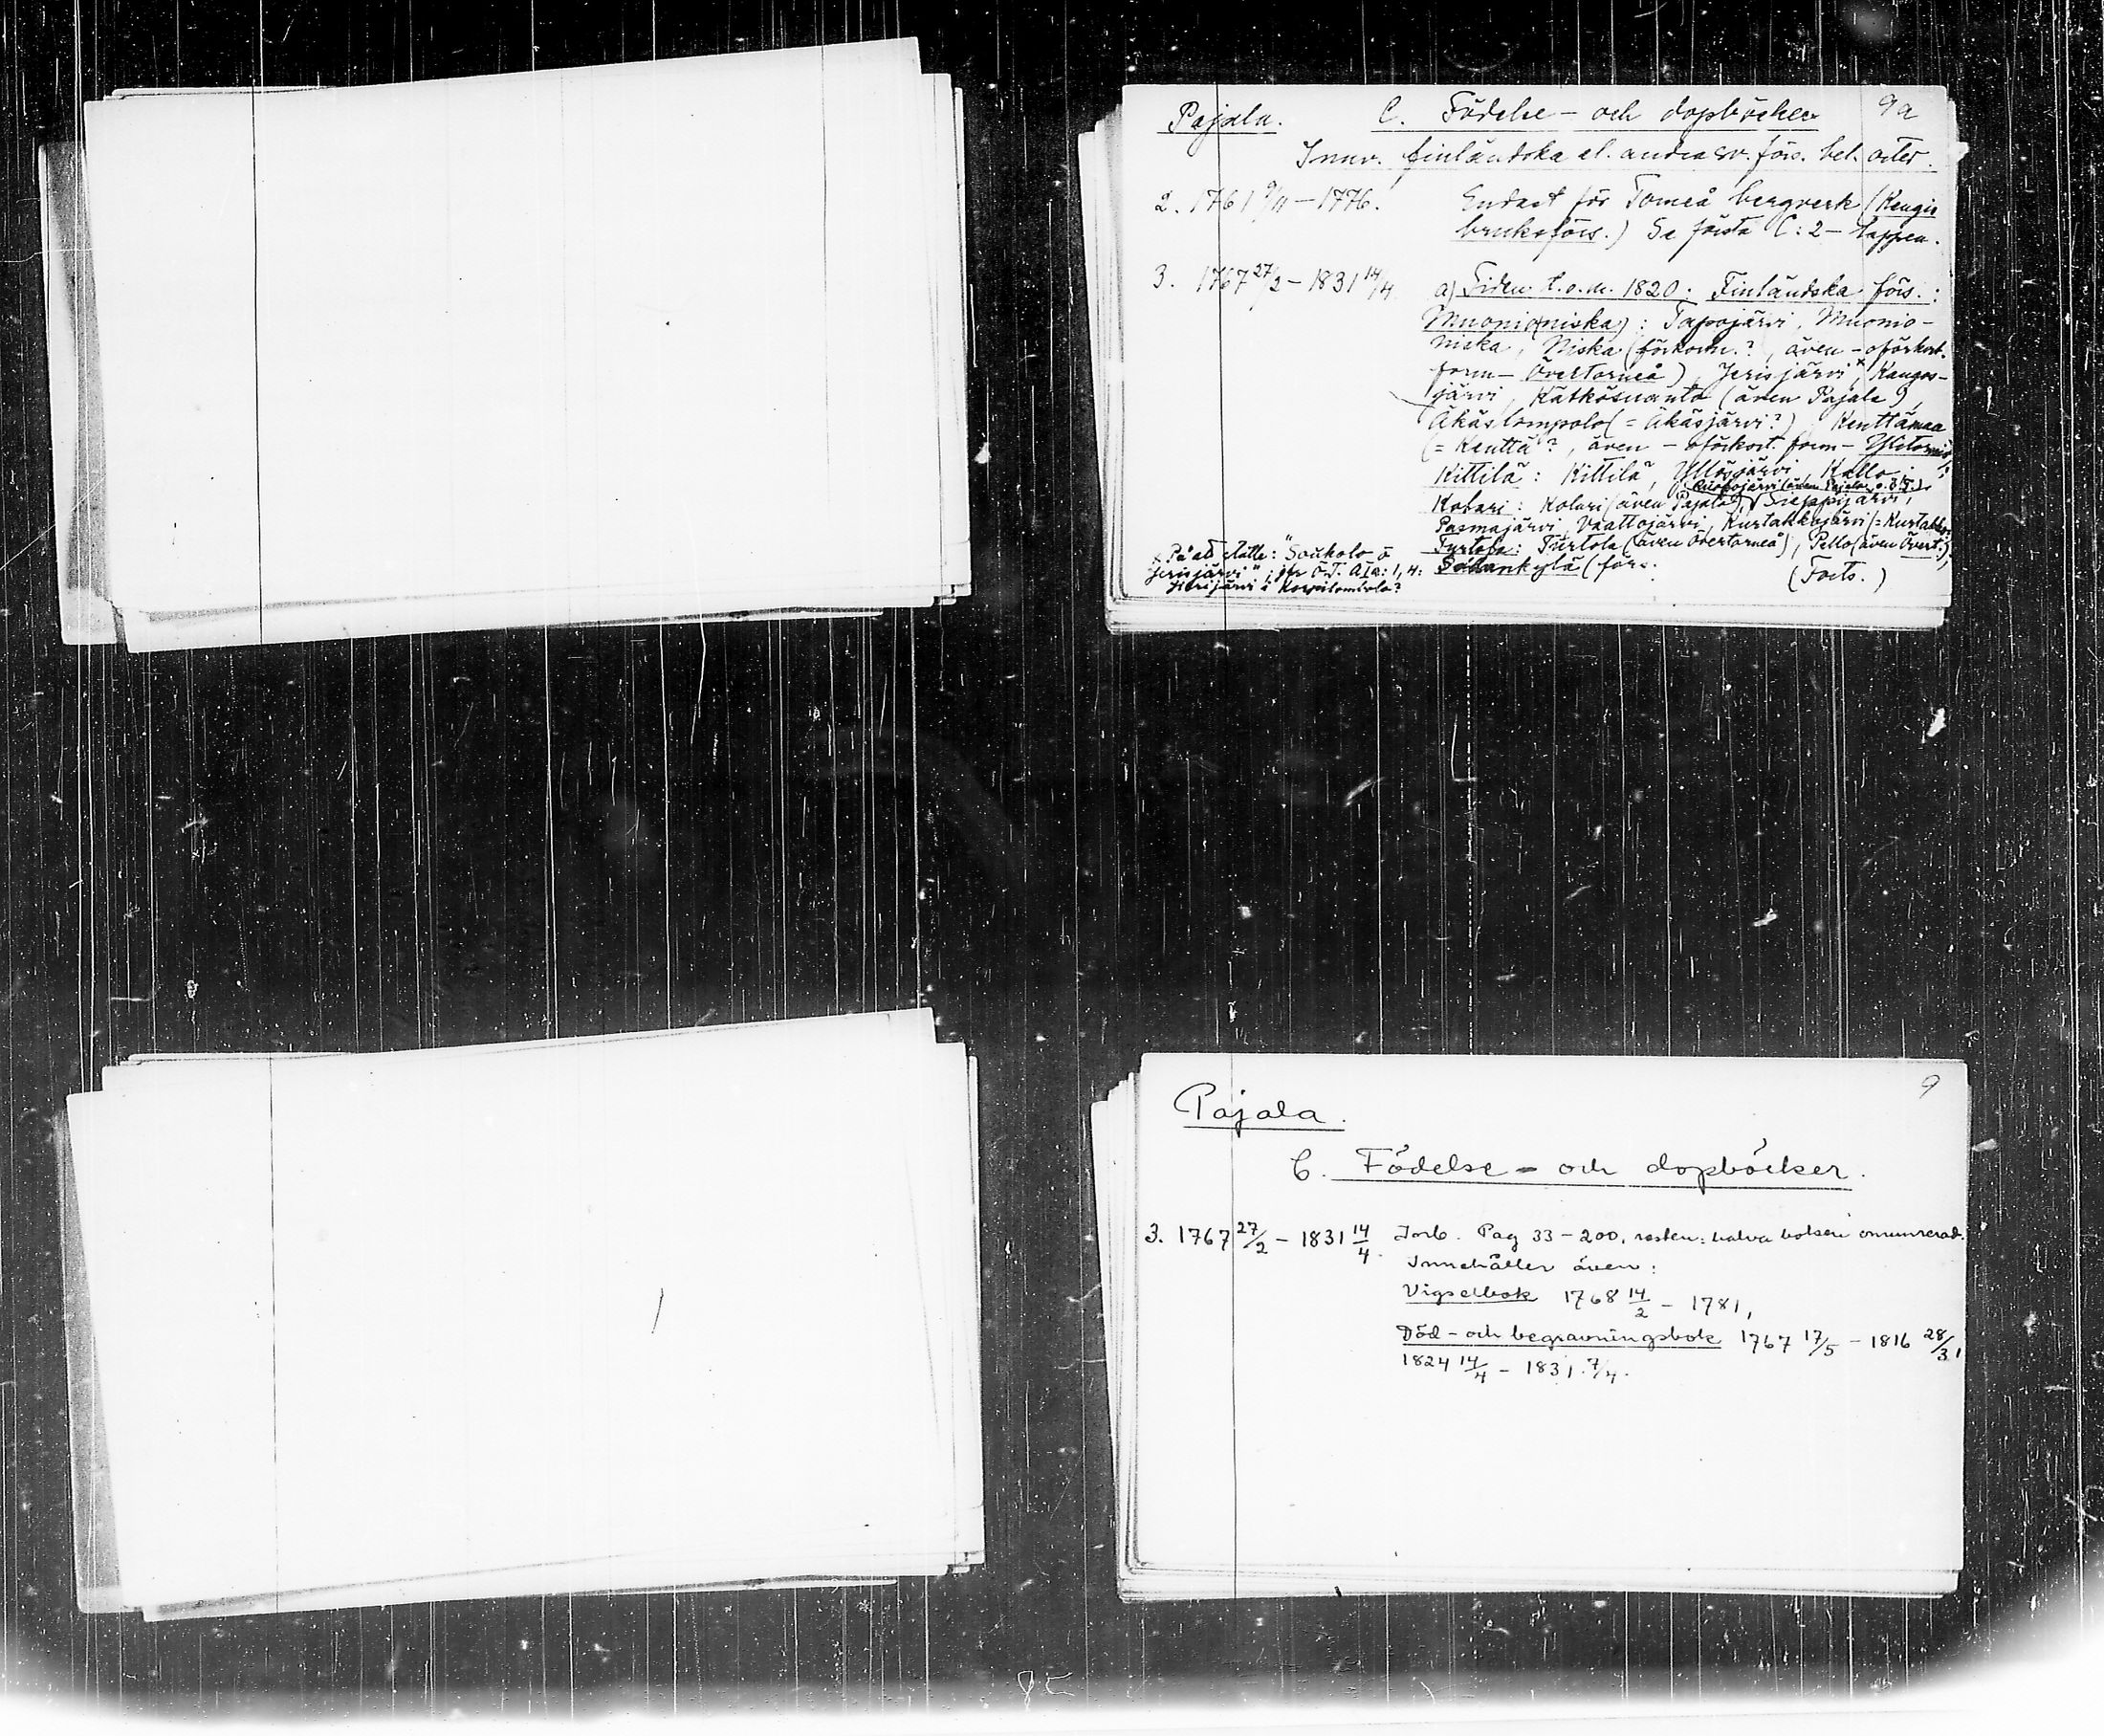 Pajala. C. Födelse- och dopböcker 9a
Innv. finländska el. andra sv. förs. bel. orter.
2. 1761 9/11 - 1776. Endast för Torneå bergverk (Kengis
bruksförs.) Se första C:2-lappen.
3. 1767 27/2 - 1831 14/4. a) Tiden t.o.m. 1820. Finländska förs.:
Muonio(niska): Tapojärvi, Muonio-
niska, Niska (förkorn.?, även - oförkort.
form - Övertorneå), Jerisjärvi x, Kangos-
järvi, Kätkösuanto (även Pajala),
Äkäslompolo (= Äkäsjärvi?), Kenttämaa
(= Kenttä?, även - oförkort. form -
Kittilä: Kittilä, Yllösjärvi, Kallo;
Kolari: Kolari (även Pajala), Sieppijärvi,
Pasmajärvi, Vaattojärvi, Kurtakkojärvi (= Kurtakko?
Turtola: Turtola (även Övertorneå), Pello (även Övert.),
Sodankylä (förs. (Forts.)
x På ett ställe: "Soukolo o
Jerisjärvi"; jfr Ö.T. AIa: 1, 4:
Jierijärvi i Korpilombolo?
9
Pajala.
C. Födelse- och dopböcker.
3. 1767 27/2 - 1831 14/4. Inb. Pag 33-200, resten: halva boken onumrerad.
Innehåller även:
Vigselbok 1768 14/2 - 1781,
Död- och begravningsbok 1767 17/5 - 1816 28/3,
1824 14/4 - 1831 7/4.
85